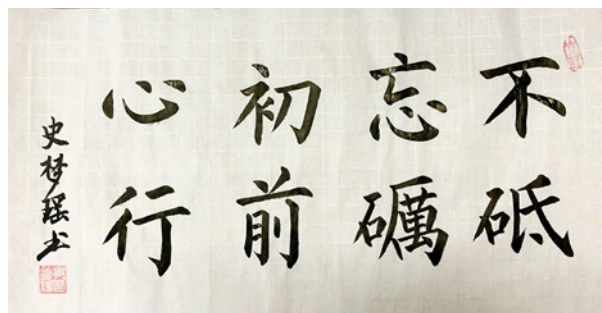 不忘初心
砥礪前行
史瑶书